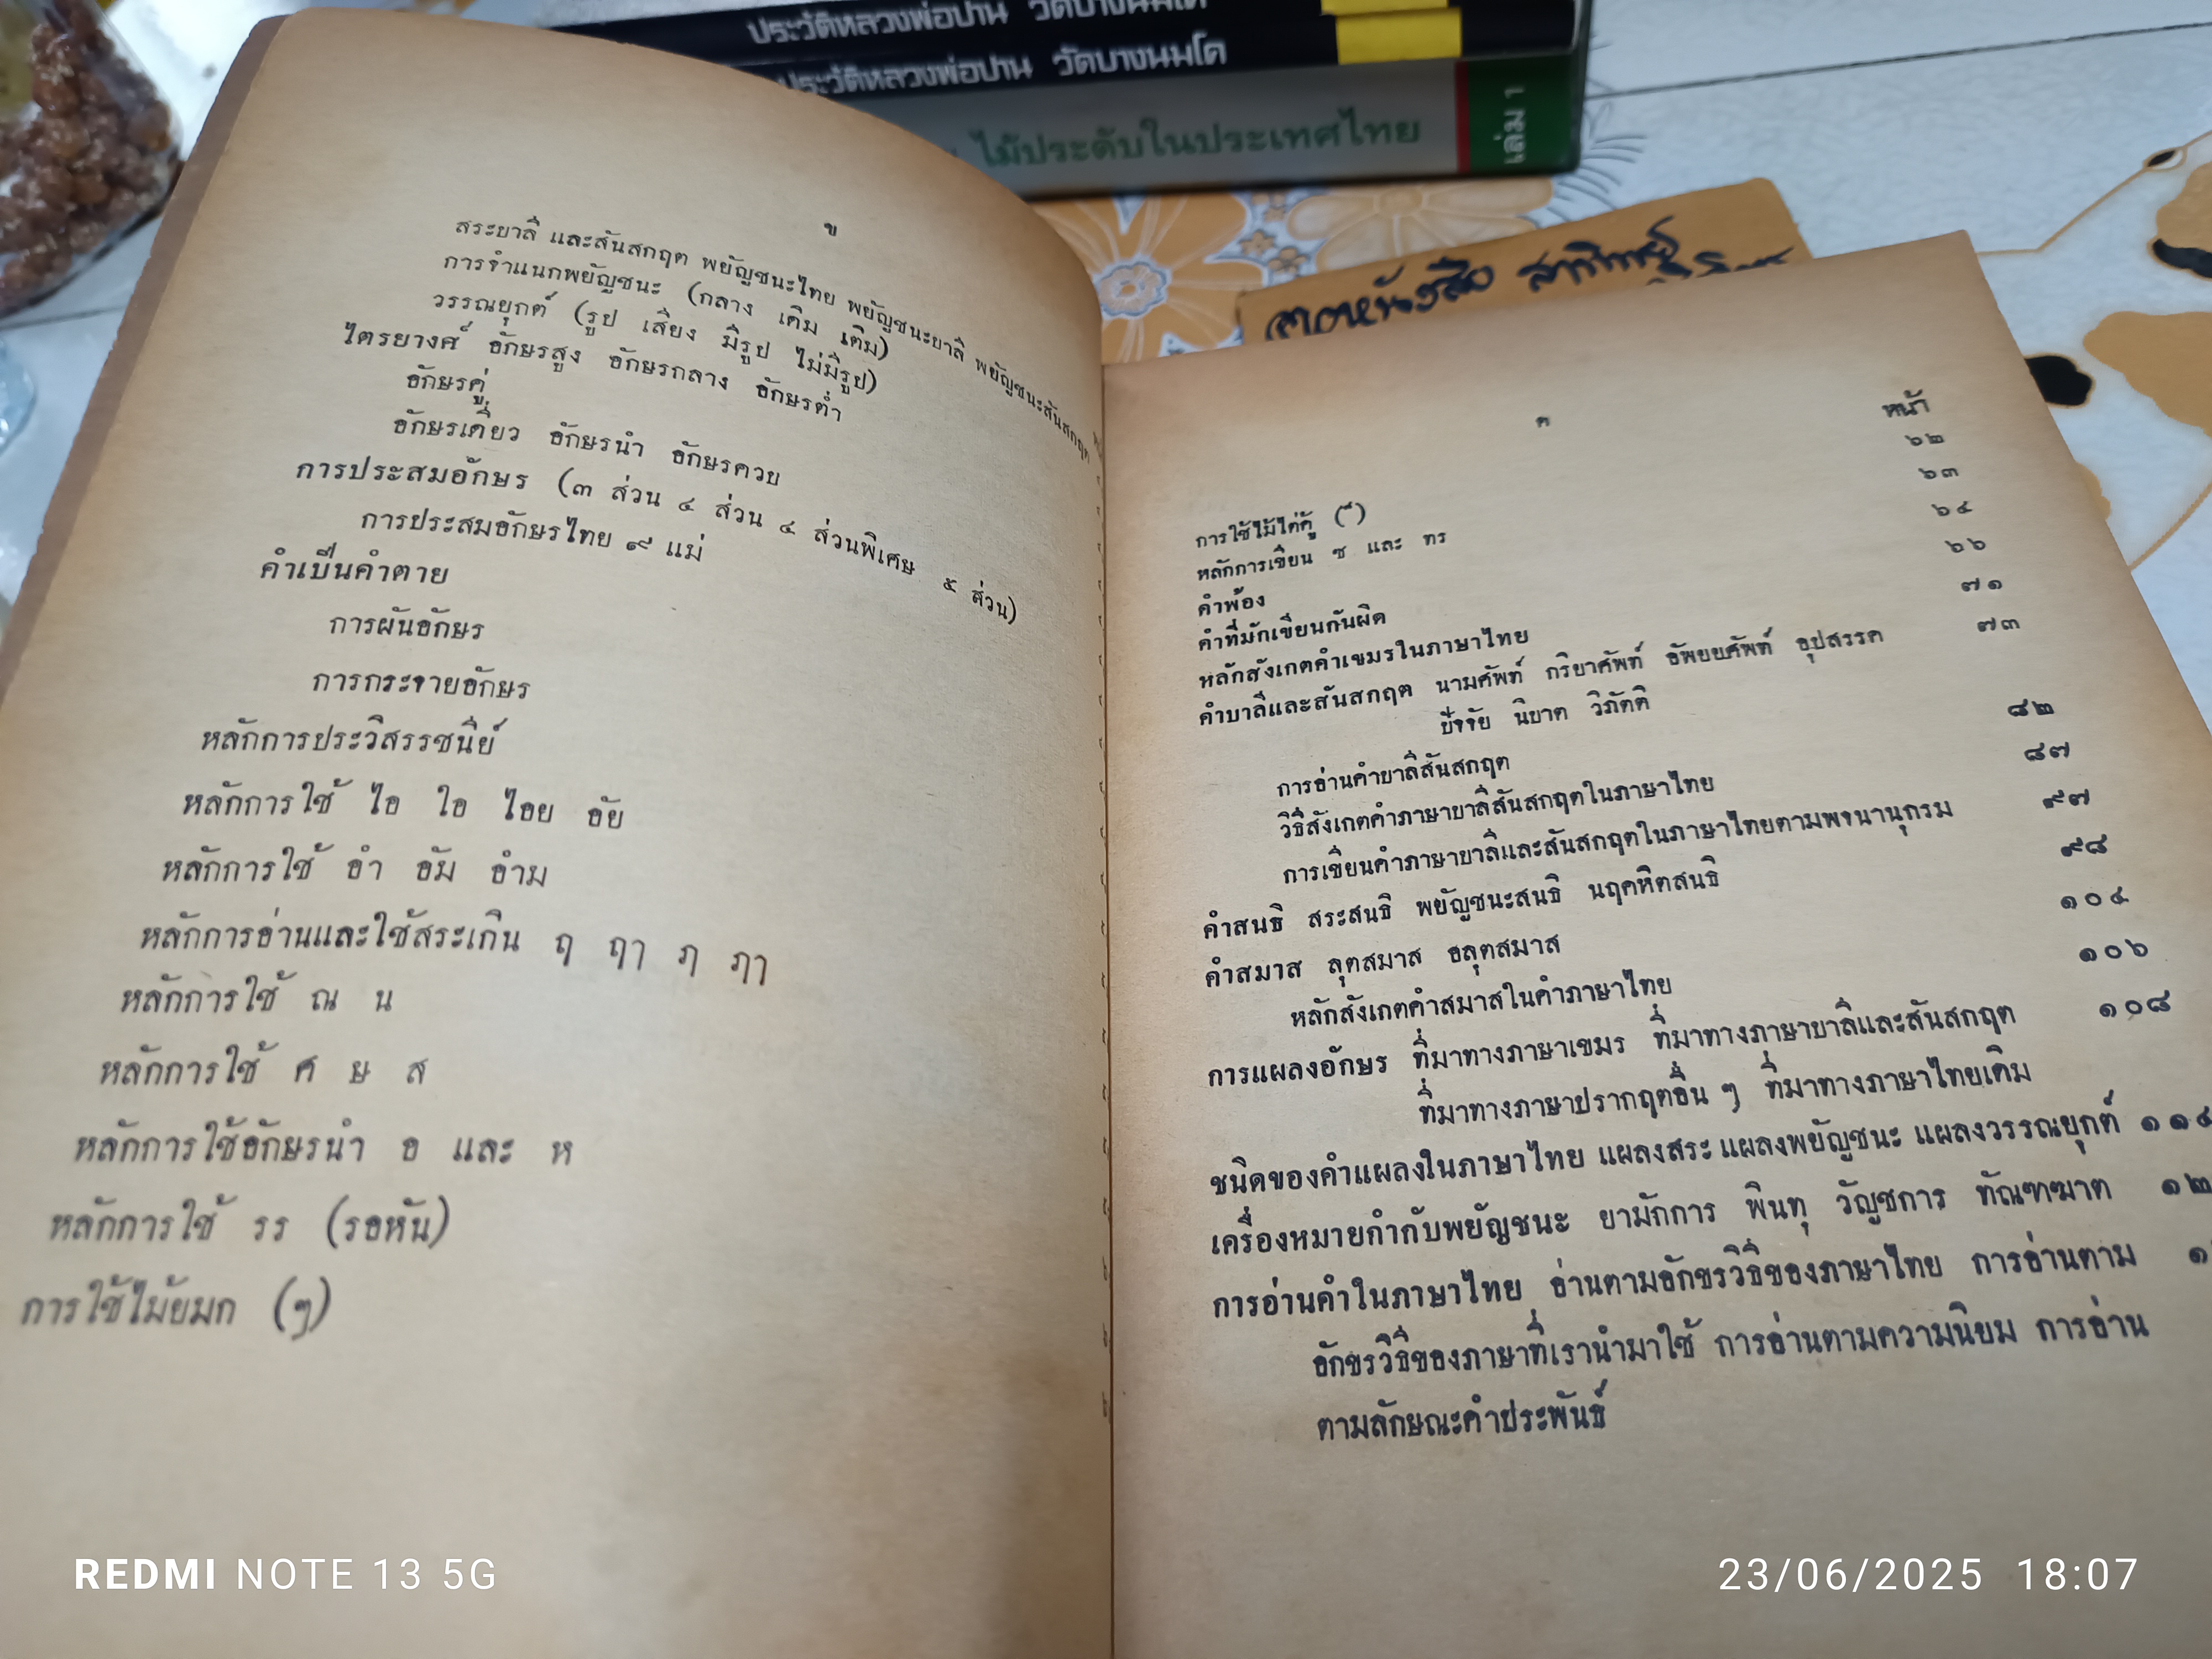 ประวัติหลวงพ่อปาน วัดบางนมโค
ประวัติหลวงพ่อปาน วัดบางนมโค
ไม้ประดับในประเทศไทย
เล่ม ๑
ข
สระบาลี และสันสกฤต พยัญชนะไทย พยัญชนะบาลี พยัญชนะสันสกฤต
การจำแนกพยัญชนะ (กลาง เดิม เติม)
วรรณยุกต์ (รูป เสียง มีรูป ไม่มีรูป)
ไตรยางศ์ อักษรสูง อักษรกลาง อักษรต่ำ
อักษรคู่
อักษรเดี่ยว อักษรนำ อักษรควบ
การประสมอักษร (๓ ส่วน ๔ ส่วน ๔ ส่วนพิเศษ ๕ ส่วน)
การประสมอักษรไทย ๙ แม่
คำเป็นคำตาย
การผันอักษร
การกระจายอักษร
หลักการประวิสรรชนีย์
หลักการใช้ ไอ ใอ ไอย อัย
หลักการใช้ อำ อัม อำม
หลักการอ่านและใช้สระเกิน ฤ ฤๅ ฦ ฦๅ
หลักการใช้ ณ น
หลักการใช้ ศ ษ ส
หลักการใช้อักษรนำ อ และ ห
หลักการใช้ รร (รอหัน)
การใช้ไม้ยมก (ๆ)
ค
หน้า
การใช้ไม้ไต่คู้ (็) ๖๒
หลักการเขียน ซ และ ทร ๖๓
คำพ้อง ๖๔
คำที่มักเขียนกันผิด ๖๖
หลักสังเกตคำเขมรในภาษาไทย ๗๑
คำบาลีและสันสกฤต นามศัพท์ กริยาศัพท์ อัพยยศัพท์ อุปสรรค ๗๓
ปัจจัย นิบาต วิภัตติ
การอ่านคำบาลีสันสกฤต ๘๒
วิธีสังเกตคำภาษาบาลีสันสกฤตในภาษาไทย ๘๗
การเขียนคำภาษาบาลีและสันสกฤตในภาษาไทยตามพจนานุกรม ๙๗
คำสนธิ สระสนธิ พยัญชนะสนธิ นฤคหิตสนธิ ๙๘
คำสมาส ลุตสมาส อลุตสมาส ๑๐๔
หลักสังเกตคำสมาสในคำภาษาไทย ๑๐๖
การแผลงอักษร ที่มาทางภาษาเขมร ที่มาทางภาษาบาลีและสันสกฤต ๑๐๘
ที่มาทางภาษาปรากฤตอื่น ๆ ที่มาทางภาษาไทยเดิม
ชนิดของคำแผลงในภาษาไทย แผลงสระ แผลงพยัญชนะ แผลงวรรณยุกต์ ๑๑๔
เครื่องหมายกำกับพยัญชนะ ยามักการ พินทุ วัญชการ ทัณฑฆาต ๑๒
การอ่านคำในภาษาไทย อ่านตามอักขรวิธีของภาษาไทย การอ่านตาม ๑
อักขรวิธีของภาษาที่เรานำมาใช้ การอ่านตามความนิยม การอ่าน
ตามลักษณะคำประพันธ์
REDMI NOTE 13 5G
23/06/2025 18:07